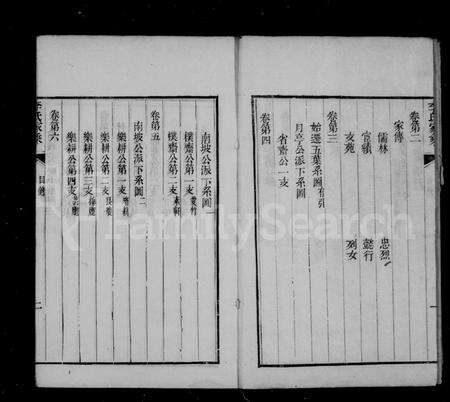 卷第二
家傳
儒林 忠烈
宦蹟 懿行
文苑 列女
卷第三
始遷五葉系圖
月亭公下系圖
卷第四
省齋公一支
李氏家乘 目錄 二
南坡公派下系圖一
樸齋公第一支
樸齋公第二支
卷第五
南坡公派下系圖二
樂耕公第一支
樂耕公第二支
樂耕公第三支
樂耕公第四支
卷第六
FamilySearch